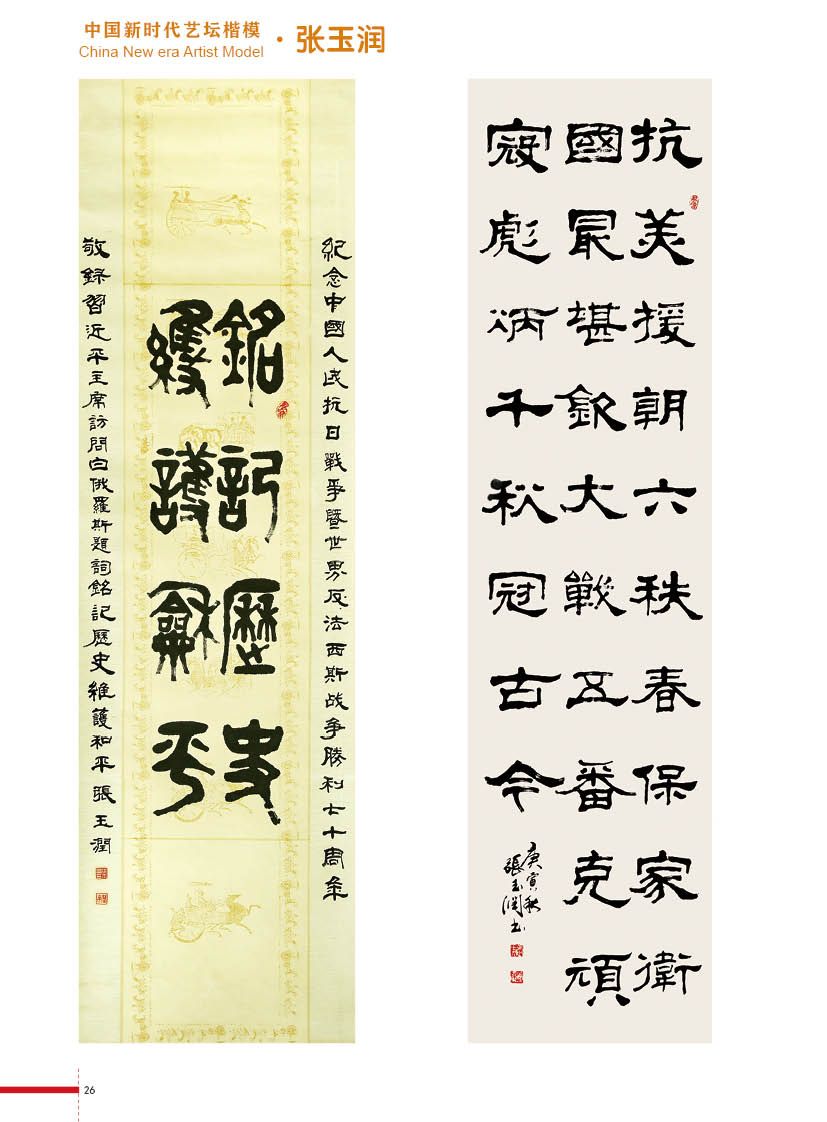 中国新时代艺坛楷模
China New era Artist Model
·张玉润
紀念中國人民抗日戰爭暨世界反法西斯战争勝利七十周年
銘記歷史
維護龢平
敬録習近平主席訪問白俄羅斯題詞銘記歷史維護和平張玉潤
抗美援朝六秩春保家衛
國最堪欽大戰五番克頑
寇彪炳千秋冠古今
庚寅秋
張玉潤书
26